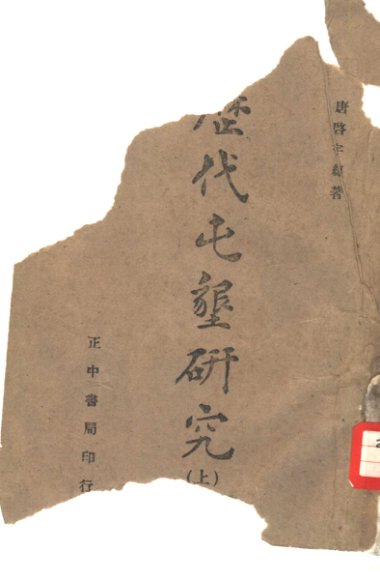 唐啓宇編著
歷代屯墾研究
(上)
正中書局印行
2